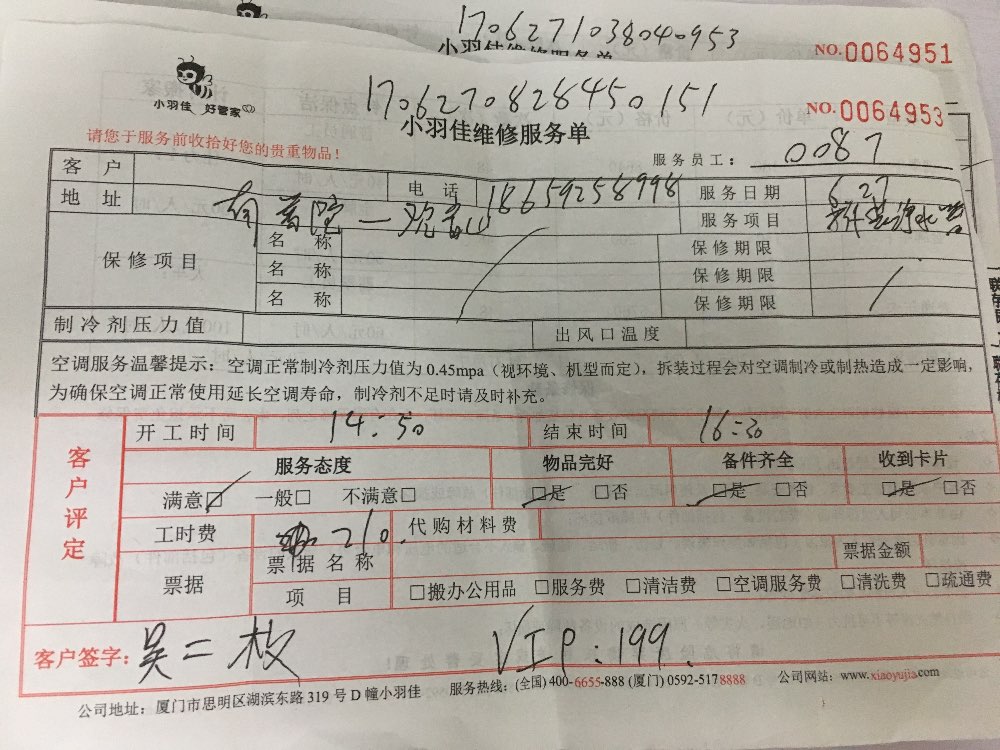 170627103804 0953
小羽佳维修服务单
NO.0064951
小羽佳 好管家
1706270828450151
NO.0064953
小羽佳维修服务单
请您于服务前收拾好您的贵重物品！
服务员工： 0087
客 户 电 话 18659258998 服务日期 6.27
地 址 服务项目
保修项目 名 称 保修期限
名 称 保修期限
名 称 保修期限
制冷剂压力值 出风口温度
空调服务温馨提示：空调正常制冷剂压力值为 0.45mpa（视环境、机型而定），拆装过程会对空调制冷或制热造成一定影响，
为确保空调正常使用延长空调寿命，制冷剂不足时请及时补充。
客户评定 开工时间 14:50 结束时间 16:30
服务态度 物品完好 备件齐全 收到卡片
满意☑ 一般□ 不满意□ ☑是 □否 ☑是 □否 ☑是 □否
工时费 210. 代购材料费
票据 票据名称 票据金额
项 目 □搬办公用品 □服务费 □清洁费 □空调服务费 □清洗费 □疏通费
客户签字： 吴二枚 VIP:199.
公司地址：厦门市思明区湖滨东路 319 号 D 幢小羽佳 服务热线：(全国) 400-6655-888 (厦门) 0592-5178888 公司网站：www.xiaoyujia.com